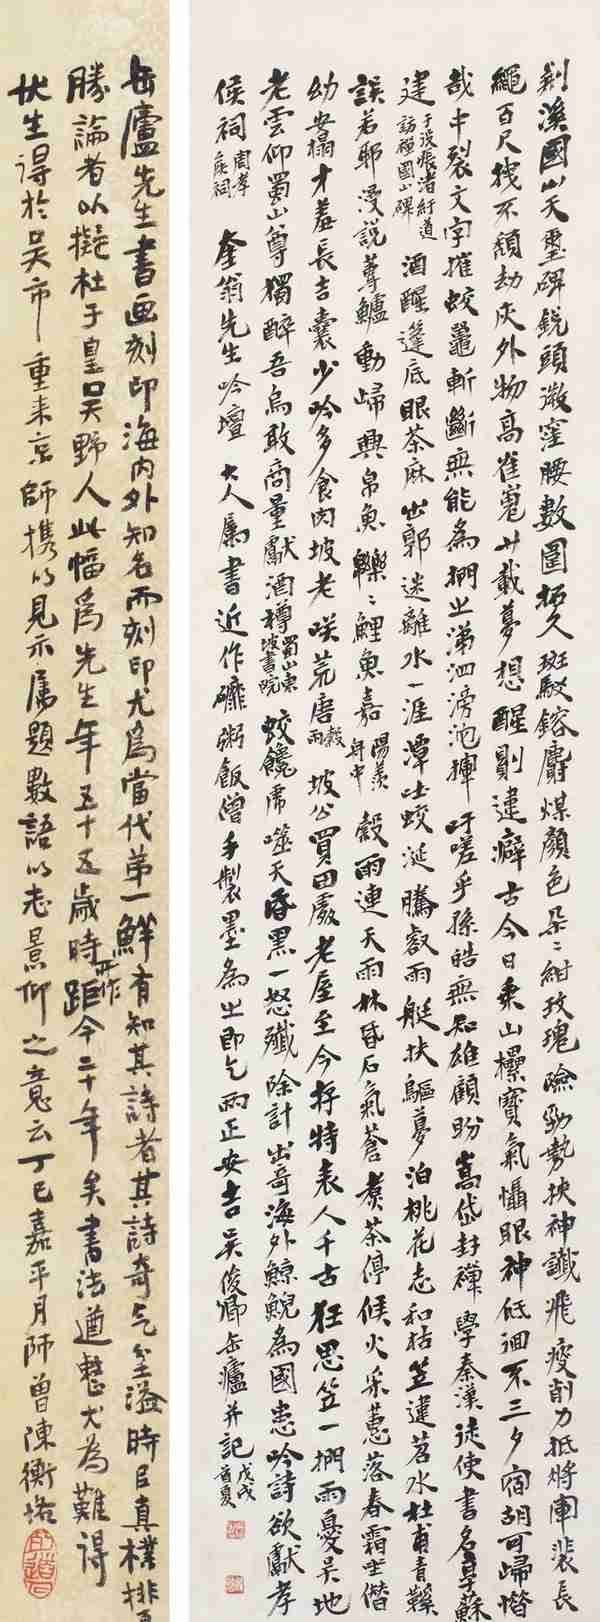 荆溪國山天璽碑銳頭微窪腰數圍拓久斑駁鎔麝煤顏色朵〻紺玫瑰險勁勢挾神讖飛瘦削力抵將軍裴長
繩百尺拽不頹劫灰外物高崔嵬廿載夢想醒則違癖古今日乘山欙寶氣懾眼神低徊不三夕宿胡可歸惜
哉中裂文字摧蛟鼉斬斷無能為捫之涕泗滂沱揮吁嗟乎孫皓無知雄顧盼嵩岱封禪學秦漢徒使書名皐蘇
建于没張渚紆道訪禪國山碑 酒醒篷底眼茶麻出郭迷離水一涯潭吐蛟涎騰毅雨艇扶驅夢泊桃花志和枯笠違苕水杜甫青鞵
誤若邪漫說蓴鱸動歸興帛魚鱳〻鯉魚嘉陽羨舟中 穀雨連天雨林昏石氣蒼煑茶停候火采蕙落春霜坐偕
幼安榻才羞長吉囊少吟多食肉坡老咲荒唐穀雨 坡公買田處老屋至今存特表人千古狂思笠一捫雨憂吳地
老雲仰蜀山尊獨醉吾烏敢商量獻酒樽蜀山東坡書院 蛟饞虎噬天昏黑一怒殲除計出奇海外鯨鯢為國患吟詩欲獻孝
侯祠周孝侯祠 奎翁先生吟壇大人屬書近作礳粥飯僧手製墨為之即乞雨正安吉吳俊卿缶廬并記戊戌首夏
缶廬先生書画刻印海内外知名而刻印尤爲當代第一鮮有知其詩者其詩奇气坌溢時臣真樸排
勝論者以擬杜于皇吳野人此幅爲先生年五十五歲時所作距今二十年矣書法遒整尤為難得
伏生得於吳市重来京師攜以見示属題數語以志景仰之意云丁巳嘉平月師曾陳衡恪